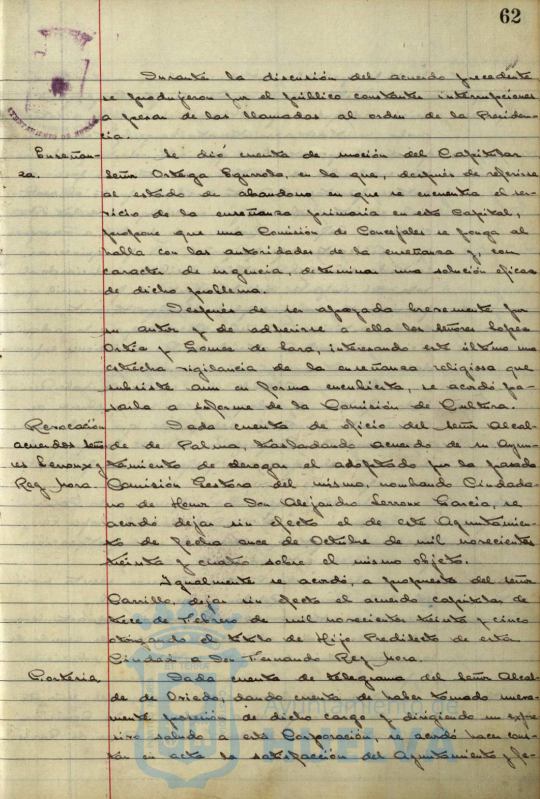 62
Durante la discusión del acuerdo precedente
se produjeron por el público constantes interrupciones
a pesar de las llamadas al orden de la Presiden-
cia.
Enseñan-
za.
Se dió cuenta de moción del Capitular
Señor Ortega Egurrola, en la que, después de referirse
al estado de abandono en que se encuentra el ser-
vicio de la enseñanza primaria en esta Capital,
propone que una Comisión de Concejales se ponga al
habla con las autoridades de la enseñanza y, con
caracter de urgencia, determinar una solución eficaz
de dicho problema.
Después de ser apoyada brevemente por
su autor y de adherirse a ella los señores Lopez
Ortia y Gomez de Lara, interesando este último una
estrecha vigilancia de la enseñanza religiosa que
subsiste aun en forma encubierta, se acordó pa-
sarla a informe de la Comisión de Cultura.
Revocación
acuerdos Seño-
res Lerroux y
Rey Mora.
Dada cuenta de oficio del Señor Alcal-
de de Palma, trasladando acuerdo de su Ayun-
tamiento de derogar el adoptado por la pasada
Comisión Gestora del mismo, nombrando Ciudada-
no de Honor a Don Alejandro Lerroux Garcia, se
acordó dejar sin efecto el de este Ayuntamien-
to de fecha once de Octubre de mil novecientos
treinta y cuatro sobre el mismo objeto.
Igualmente se acordó, a propuesta del señor
Carrillo, dejar sin efecto el acuerdo capitular de
trece de Febrero de mil novecientos treinta y cinco
otorgando el título de Hijo Predilecto de esta
Ciudad a Don Fernando Rey Mora.
Cortesía.
Dada cuenta de telegrama del Señor Alcal-
de de Oviedo, dando cuenta de haber tomado nueva-
mente posesión de dicho cargo y dirigiendo un expre-
sivo saludo a esta Corporación, se acordó hacer cons-
tar en acta la satisfacción del Ayuntamiento y fe-
AYUNTAMIENTO DE HUELVA
Ayuntamiento de
HUELVA